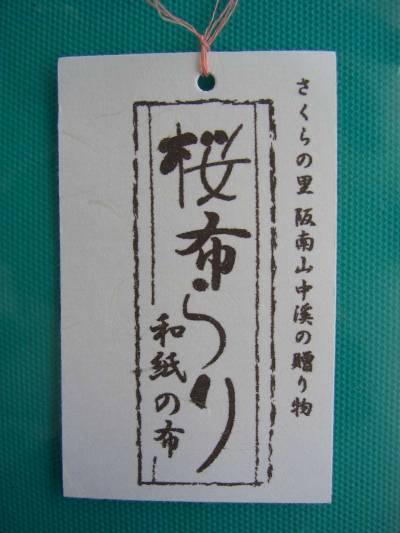 さくらの里 阪南山中溪の贈り物
桜布らり
和紙の布